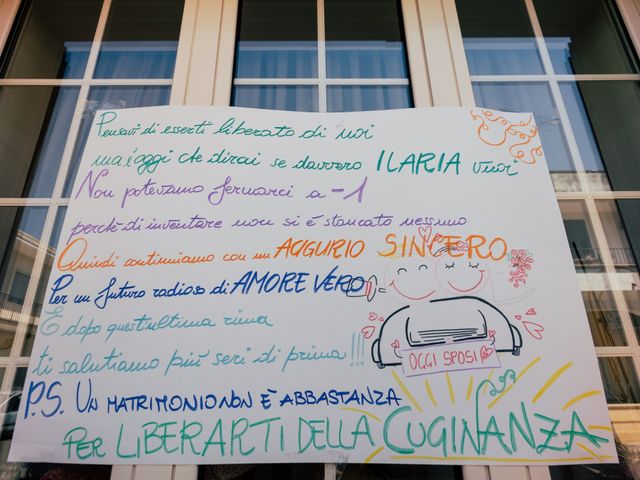 Pensavi di esserti liberato di noi
ma è oggi che dirai se davvero ILARIA vuoi
Non potevamo fermarci a -1
perchè di inventare non si è stancato nessuno
Quindi continuiamo con un AUGURIO SINCERO
Per un futuro radioso di AMORE VERO
E dopo quest'ultima rima
ti salutiamo più seri di prima!!!
OGGI SPOSI
P.S. UN MATRIMONIO NON È ABBASTANZA
PER LIBERARTI DELLA CUGINANZA